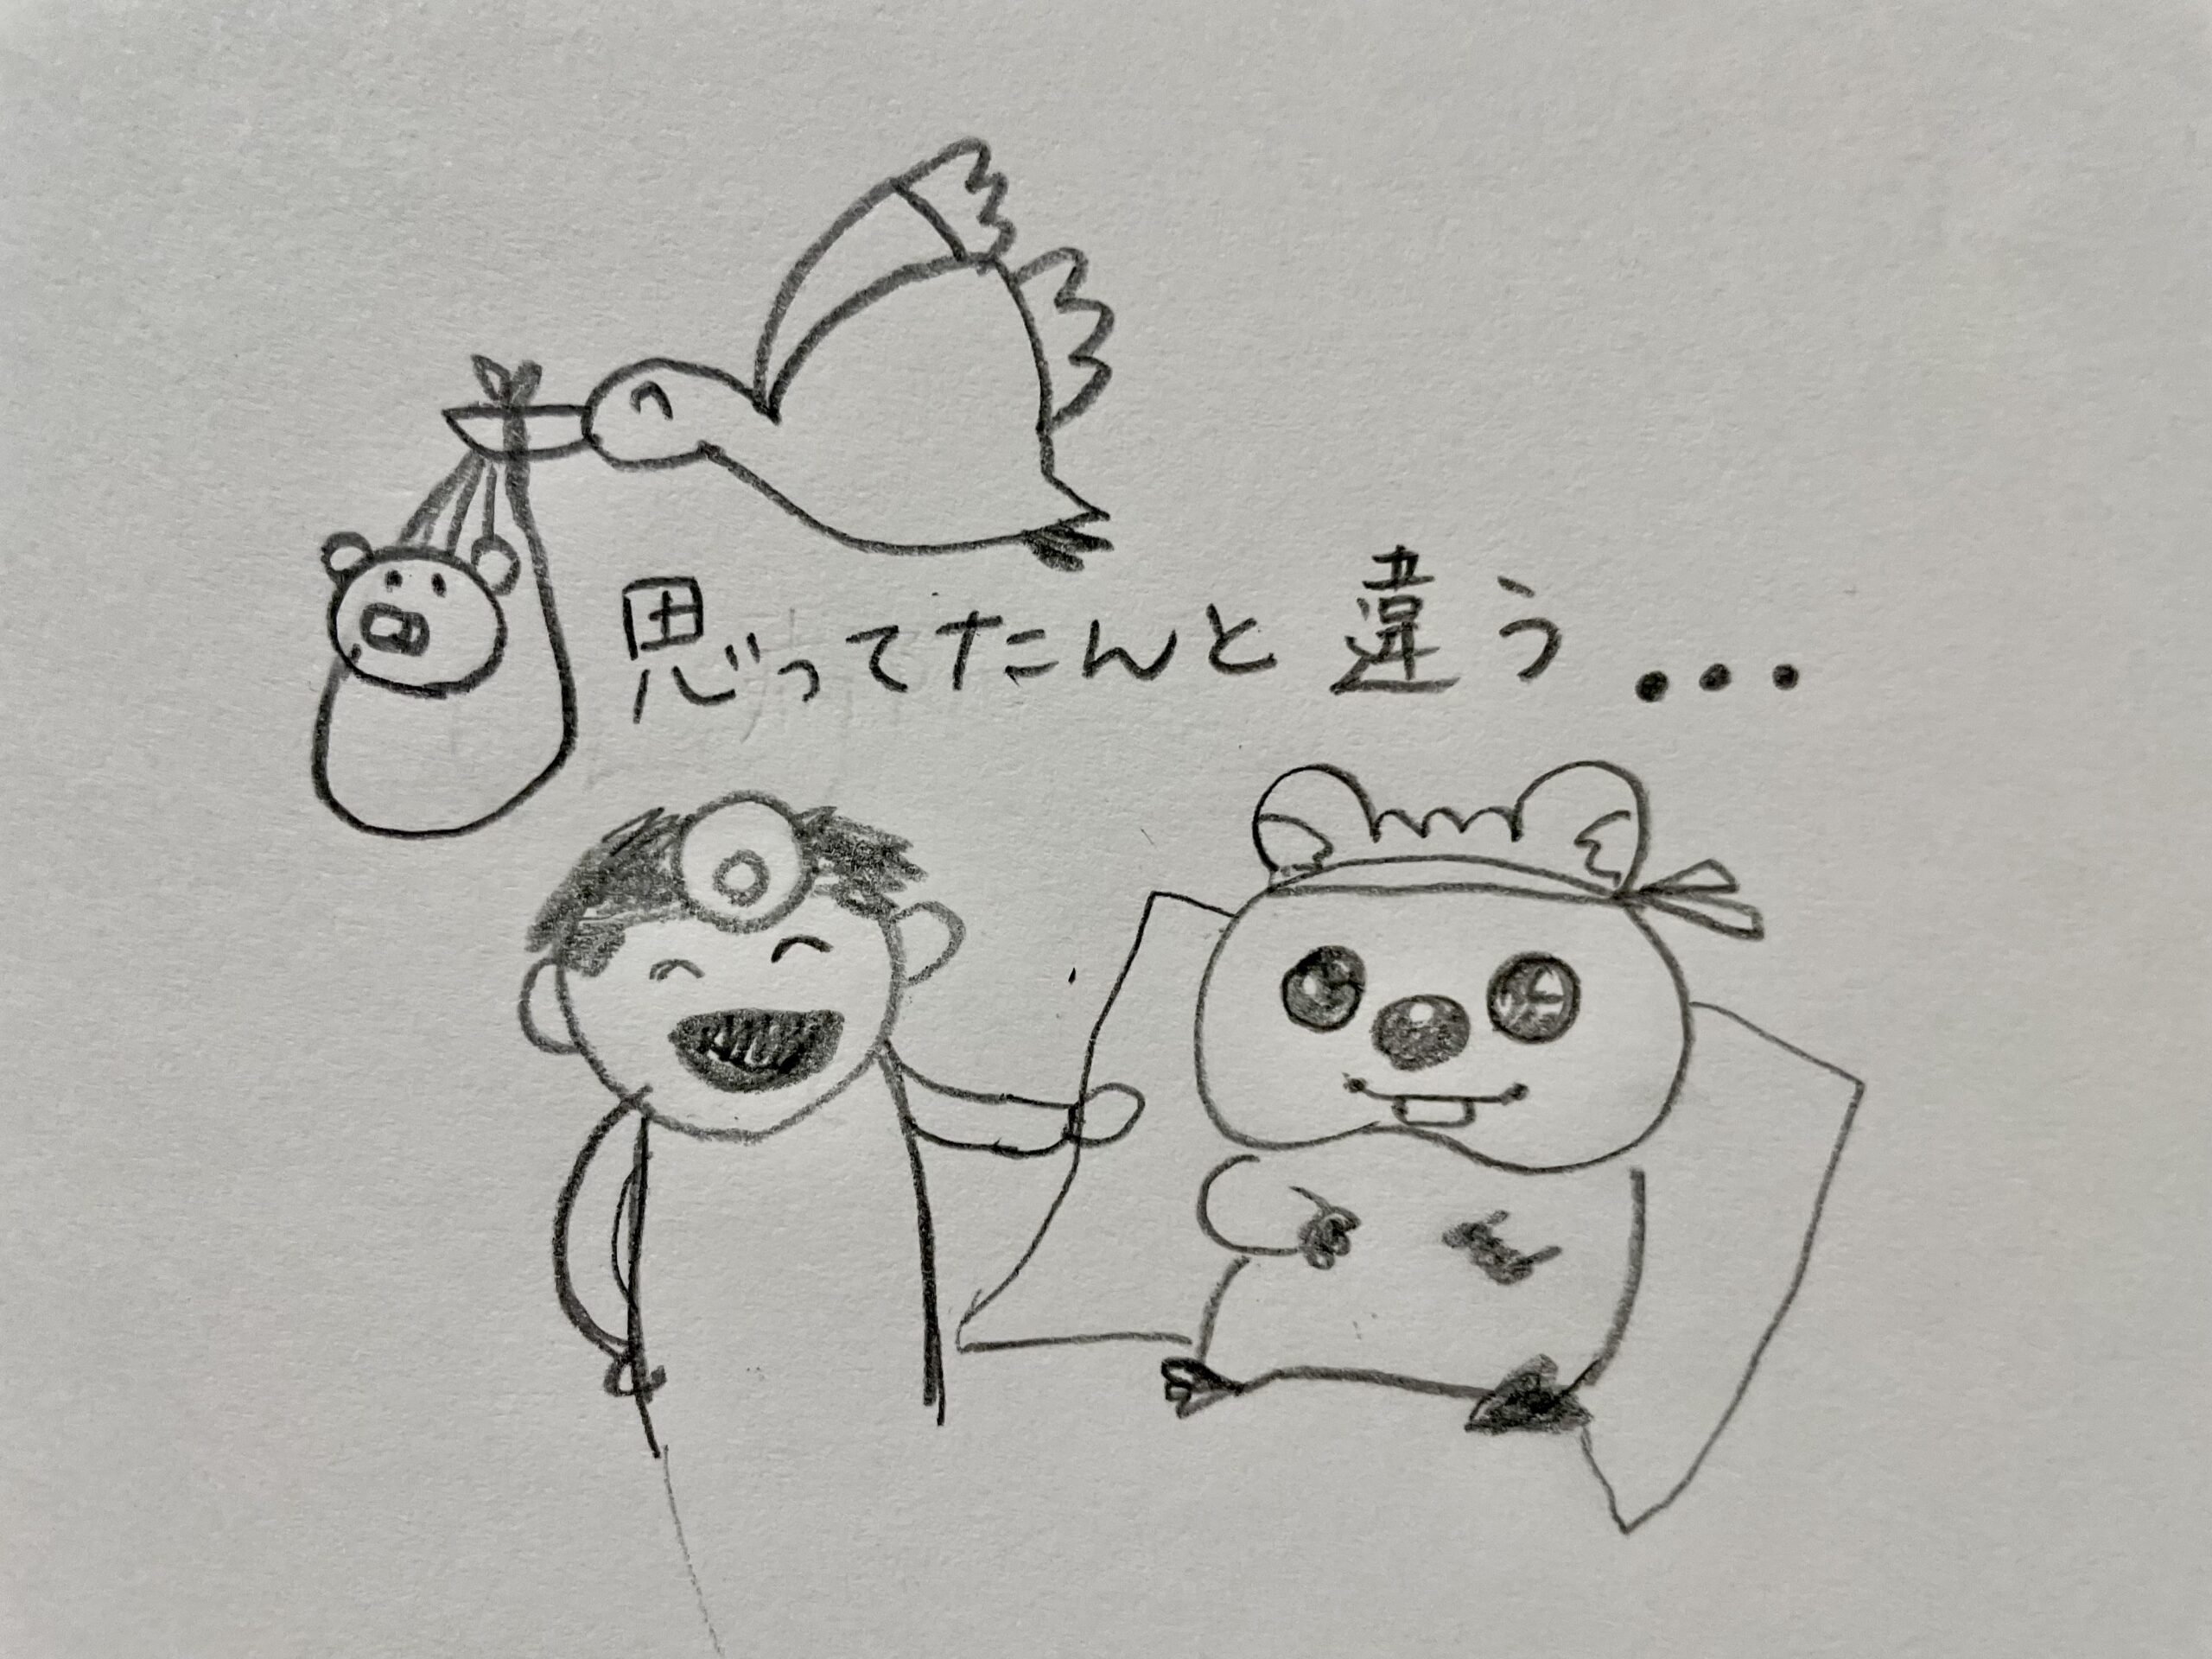 思ってたんと違う...